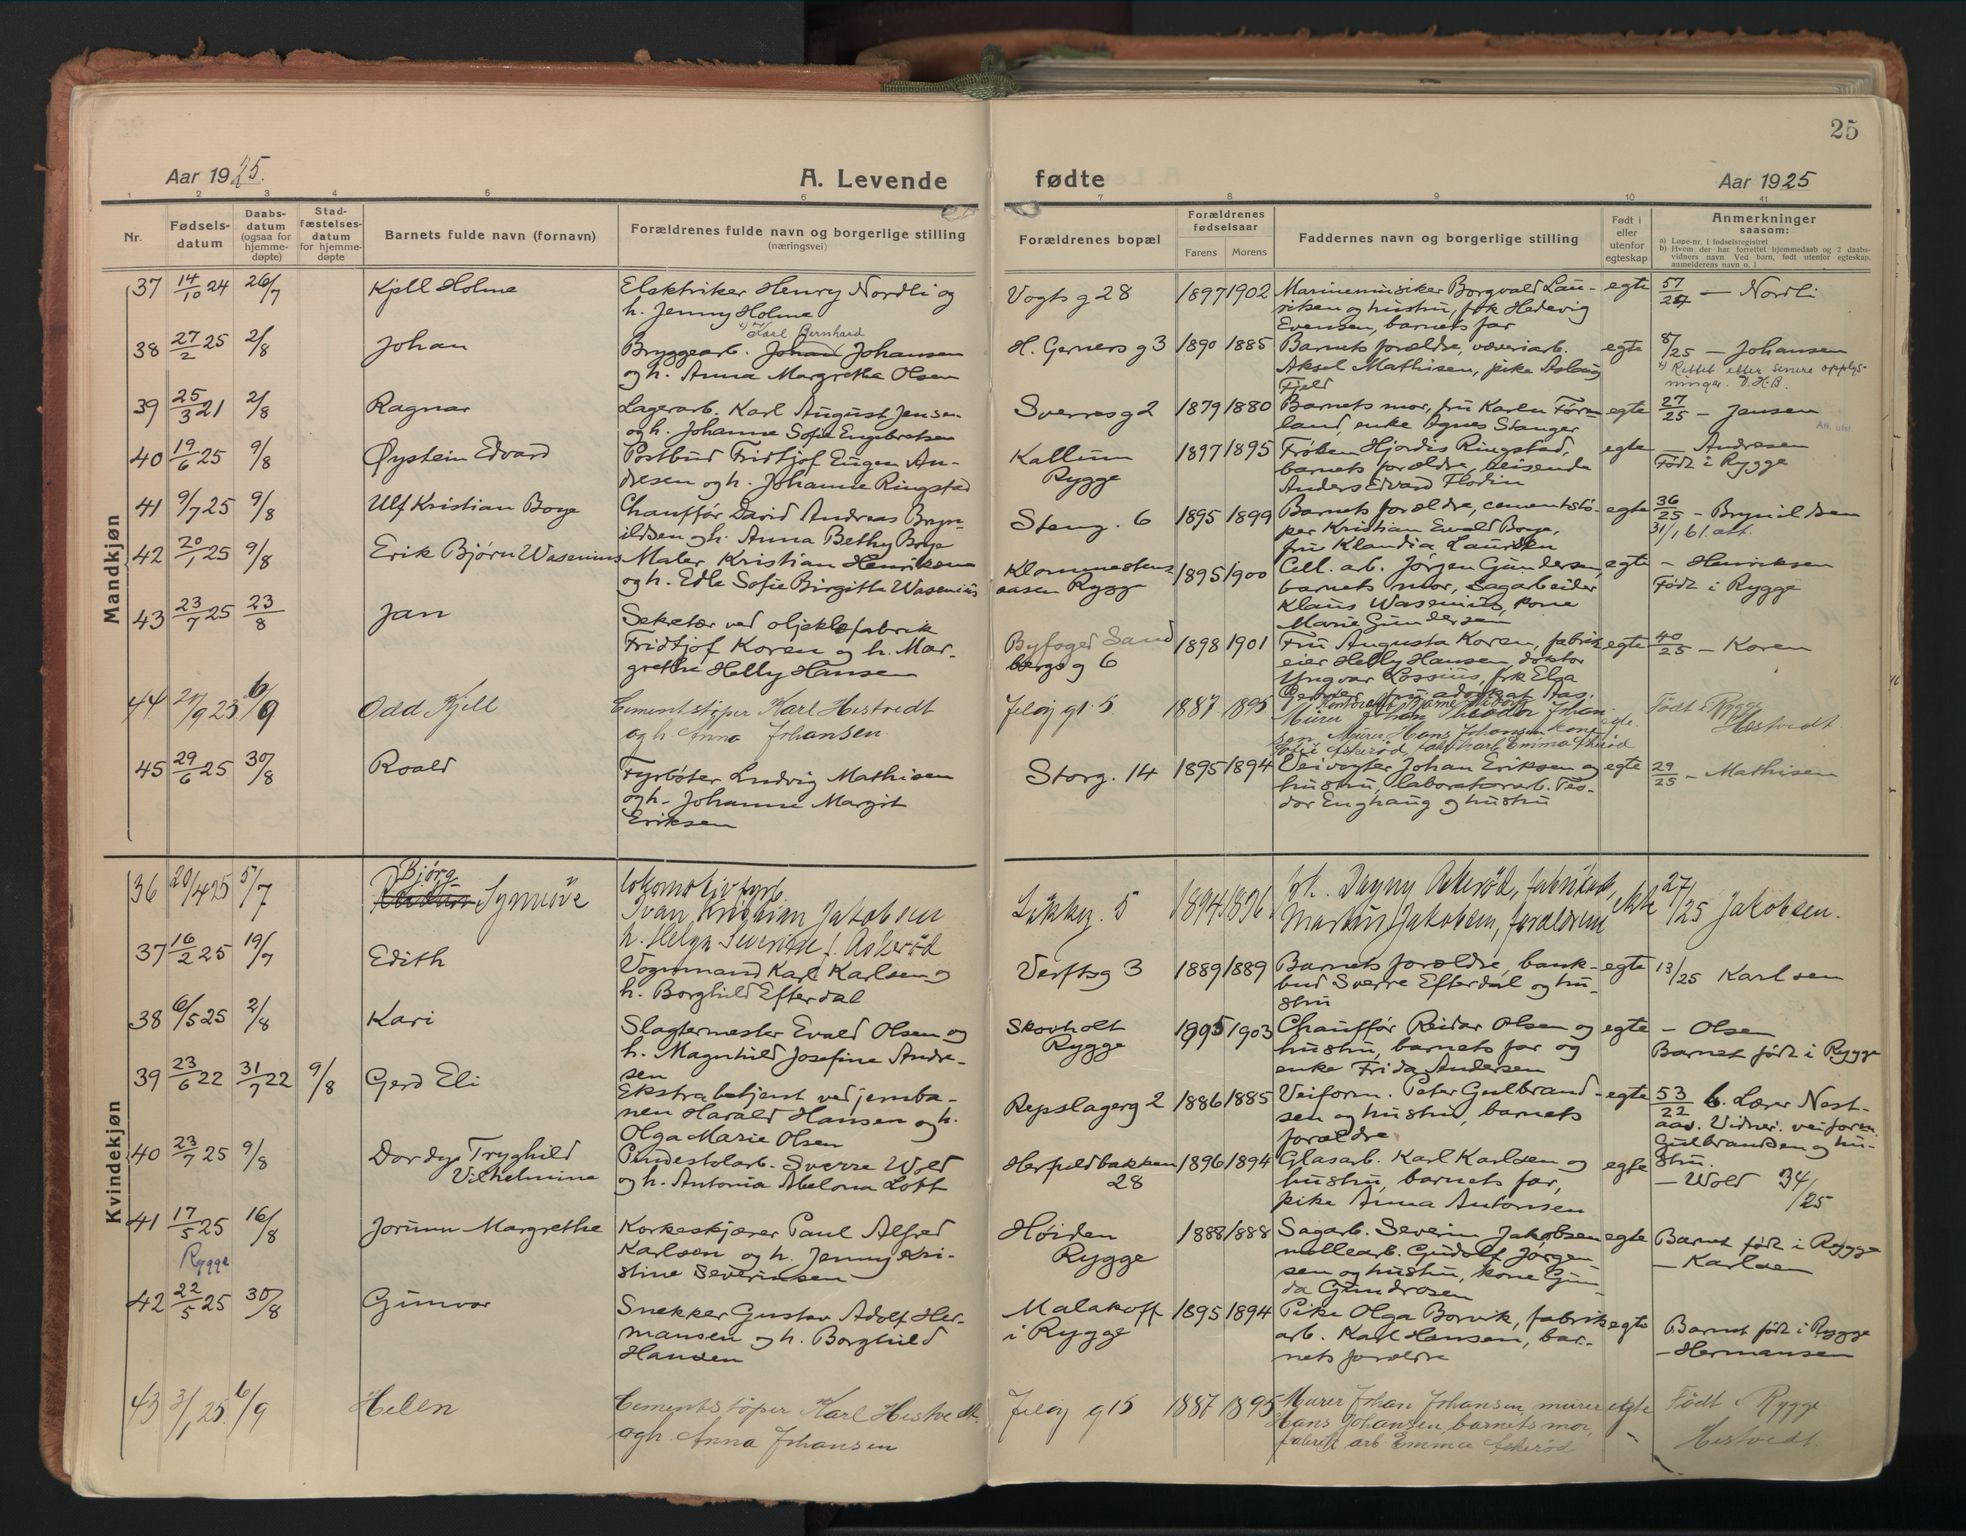 25
Aar 1925.
A. Levende
fødte
Aar 1925
1 2 3 4 5 6 7 8 9 10 11
Nr.
Fødsels-
datum
Daabs-
datum
(ogsaa for
hjemme-
døpte)
Stad-
fæstelses-
datum
for hjemme-
døpte
Barnets fulde navn (fornavn)
Forældrenes fulde navn og borgerlige stilling
(næringsvei)
Forældrenes bopæl
Forældrenes
fødselsaar
Farens Morens
Faddernes navn og borgerlige stilling
Født i
eller
utenfor
egteskap
Anmerkninger
saasom:
a) Løpe-nr. i fødselsregistret
b) Hvem der har forrettet hjemmedaab og 2 daabs-
vidners navn. Ved barn, født utenfor egteskap,
anmelderens navn o. l
Mandkjøn
37 14/10 24 26/7 Kjell Holme
Elektriker Henry Nordli og
h. Jenny Holme
Vogts g 28 1897 1902
Marinemusiker Borgvald Lau-
ritsen og hustru, frk Hedevig
Evensen, barnets far
egte 57/24 — Nordli
38 27/2 25 2/8 Johan
Karl Bernhard
Bryggearb. Johan Johansen
og h. Anna Margrethe Olsen
H. Gerners g 3 1890 1885
Barnets forældre, væveriarb.
Aksel Mathisen, pike Aslaug
Fjeld
egte 8/25 — Johansen
Rettet efter senere opplys-
ninger. V.H.B.
39 25/3 21 2/8 Ragnar
Lagerarb. Karl August Jensen
og h. Johanne Sofie Engebretsen
Sverres g 2 1879 1880
Barnets mor, fru Karen Førn-
land, enke Agnes Stanger
egte 27/25 — Jensen
Att. utst.
40 19/6 25 9/8 Øystein Edvard
Postbud Fridtjof Eugen An-
dresen og h. Johanne Ringstad
Kallum
Rygge
1897 1895
Frøken Hjordis Ringstad,
barnets forældre, reisende
Anders Edvard Flodin
egte — Andresen
Født i Rygge
41 9/7 25 9/8 Ulf Kristian Boye
Chauffør David Andreas Bryn-
ildsen og h. Anna Bethy Boye
Steng. 6 1895 1899
Barnets forældre, cementstø-
per Kristian Ewald Boye,
fru Klandia Lauritsen
egte 36/25 — Brynildsen
31/1 61 att.
42 20/1 25 9/8 Erik Bjørn Wasenius
Maler Kristian Henriksen
og h. Edle Sofie Birgitte Wasenius
Klommestens
aasen Rygge
1895 1900
Cell. arb. Jørgen Gundersen,
barnets mor, sagarbeider
Klaus Wasenius, kone
Marie Gundersen
egte — Henriksen
Født i Rygge
43 23/7 25 23/8 Jan
Sekretær ved oljeklæfabrik
Fridtjof Koren og h. Mar-
grethe Helly Hansen
Byfoged Sand
bergs g 6
1898 1901
Fru Augusta Koren, fabrik
eier Helly Hansen, doktor
Yngvar Lossius, frk Elsa
fru advokat Aas.
egte 40/25 — Koren
44 20/9 23 6/9 Odd Kjell
Cementstøper Karl Hestvedt
og h. Anna Johansen.
Jeløy gt. 5. 1887 1895
Murer Johan Teodor Johan
sen, Murer Hans Johansen, kone
Askerød, fabrikarb Emma Askerød
egte. Født i Rygge
Hestvedt
45 29/6 25 30/8 Roald
Fyrbøter Ludvig Mathisen
og h. Johanne Margit
Eriksen
Storg. 14 1895 1894
Veivogter Johan Eriksen og
hustru, laboratoriearb. Teo-
dor Enghaug og hustru
egte 29/25 — Mathisen
Kvindekjøn
36 20/4 25 5/7 Bjørg
Synnøve
Lokomotivfyrb.
Ivan Kristian Jakobsen
h. Helga Severine f. Askerød
Lykkeg. 5 1894 1896
frk. Dagny Askerød, fabrikarb,
Markus Jakobsen, forældrene
ekte 27/25 Jakobsen.
37 16/2 25 19/7 Edith
Vognmand Karl Karlsen og
h. Borghild Efterdal
Verftsg 3 1889 1889
Barnets forældre, bank-
bud Sverre Efterdal og hu-
stru
egte 13/25 Karlsen
38 6/5 25 2/8 Kari
Slagtermester Evald Olsen og
h. Magnhild Josefine Andre-
sen
Skovholt
Rygge
1995 1903
Chauffør Reidar Olsen og
hustru, barnets far og
enke Frida Andersen
egte — Olsen
Barnet født i Rygge
39 23/6 22 31/7 22 9/8 Gerd Eli
Ekstrabetjent ved jernba-
nen Harald Hansen og h.
Olga Marie Olsen
Repslagerg 2 1886 1885
Veiform. Peter Gulbrand-
sen og hustru, barnets
forældre
egte 53/22 b. Lærer Nest-
aas. Vidner. veiform.
Gulbrandsen og hu-
stru.
40 23/7 25 9/8 Dordys Tryghild
Vilhelmine
Pindestolarb. Sverre Wold
og h. Antonia Abelona Lott
Herfuldbakken
28
1896 1894
Glasarb. Karl Karlsen og
hustru, barnets far,
pike Anna Antonsen
egte — Wold 34/25
41 17/5 25 16/8 Jorunn Margrethe
Rygge
Korkeskjærer Paul Alfred
Karlsen og h. Jenny Kri-
stine Severinsen
Høiden
Rygge
1888 1888
Sagarb. Severin Jakobsen
møllearb. Gudolf Jørgen-
sen og hustru, kone Gun-
da Gundrosen
egte Barnet født i Rygge
— Karlsen
42 22/5 25 30/8 Gunvor
Snekker Gustav Adolf Her-
mansen og h. Borghild
Hansen
Malakoff
i Rygge
1895 1894
Pike Olga Borvik, fabrik
arb. Karl Hansen, bar-
nets forældre
egte Barnet født i Rygge
— Hermansen
43 3/1 25. 6/9 Helen
Cementstøper Karl Hestvedt.
og h. Anna Johansen
Jeløy g 15 1887 1895
Murer Johan Johansen, murer
Hans Johansen, barnets mor,
fabrik arb Emma Askerød
egte Født i Rygge
Hestvedt